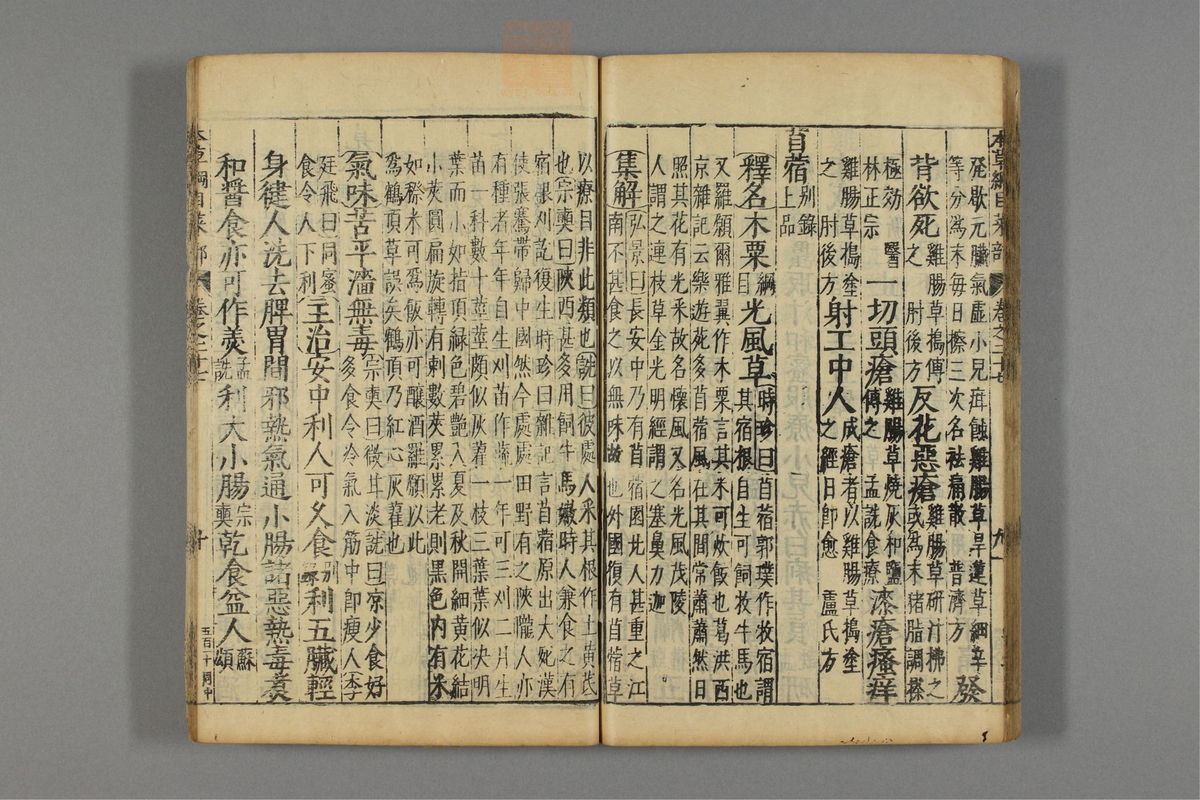 本草綱目菜部 卷之二十七 九
等分爲末每日擦三次名祛痛散 普濟方
發歇元臟氣虛小兒疳蝕雞腸草旱蓮草細辛 發
背欲死 雞腸草搗傅之 肘後方 反花惡瘡 雞腸草研汁拂之或爲末豬脂調搽
極効 醫林正宗 一切頭瘡 雞腸草燒灰和鹽傅之 孟詵食療 漆瘡瘙痒
雞腸草搗塗之 肘後方 射工中人 成瘡者以雞腸草搗塗之經日卽愈 盧氏方
苜蓿 別錄上品
釋名 木粟 綱目 光風草 時珍曰苜蓿郭璞作牧宿謂其宿根自生可飼牧牛馬也
又羅願爾雅翼作木粟言其米可炊飯也葛洪西
京雜記云樂遊苑多苜蓿風在其間常蕭蕭然日
照其花有光采故名懷風又名光風茂陵
人謂之連枝草金光明經謂之塞鼻力迦。
集解 弘景曰長安中乃有苜蓿園北人甚重之江南不甚食之以無味故也外國復有苜蓿草
以療目非此類也詵曰彼處人采其根作土黃芪
也宗奭曰陝西甚多用飼牛馬嫩時人兼食之有
宿根刈訖復生時珍曰雜記言苜蓿原出大宛漢
使張騫帶歸中國然今處處田野有之陝隴人亦
有種者年年自生刈苗作蔬一年可三刈二月生
苗一科數十莖莖頗似灰藋一枝三葉葉似決明
葉而小如指頂綠色碧艷入夏及秋開細黃花結
小莢圓扁旋轉有刺數莢累累老則黑色內有米
如穄米可爲飯亦可釀酒羅願以此
爲鶴頂草誤矣鶴頂乃紅心灰藋也
氣味 苦平濇無毒 宗奭曰微甘淡詵曰凉少食好多食令冷氣入筋中卽瘦人李
廷飛曰同蜜食令人下利 主治 安中利人可久食 別錄 利五臟輕
身健人洗去脾胃間邪熱氣通小腸諸惡熱毒煑
和醬食亦可作羹 孟詵 利大小腸 宗奭 乾食益人 蘇頌
本草綱目菜部 卷之二十七 十